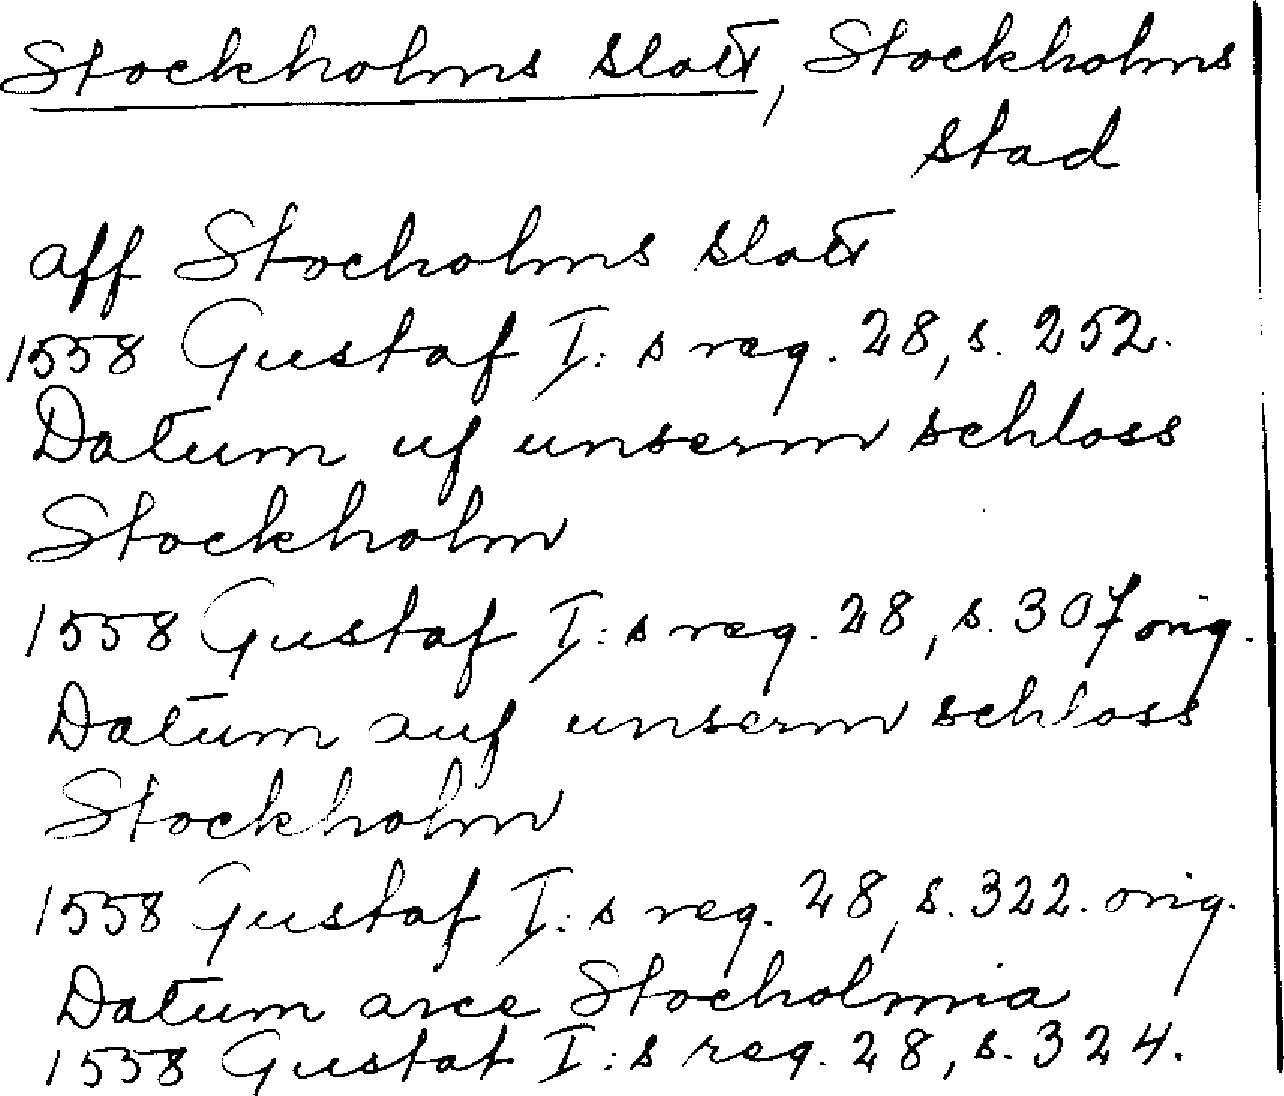 Stockholms slott, Stockholms
stad
aff Stocholms slott
1558 Gustaf I:s reg. 28, s. 252.
Datum uf unserm schloss
Stockholm
1558 Gustaf I:s reg. 28, s. 307 orig.
Datum auf unserm schloss
Stockholm
1558 Gustaf I:s reg. 28, s. 322. orig.
Datum arce Stocholmia
1558 Gustaf I:s reg. 28, s. 324.